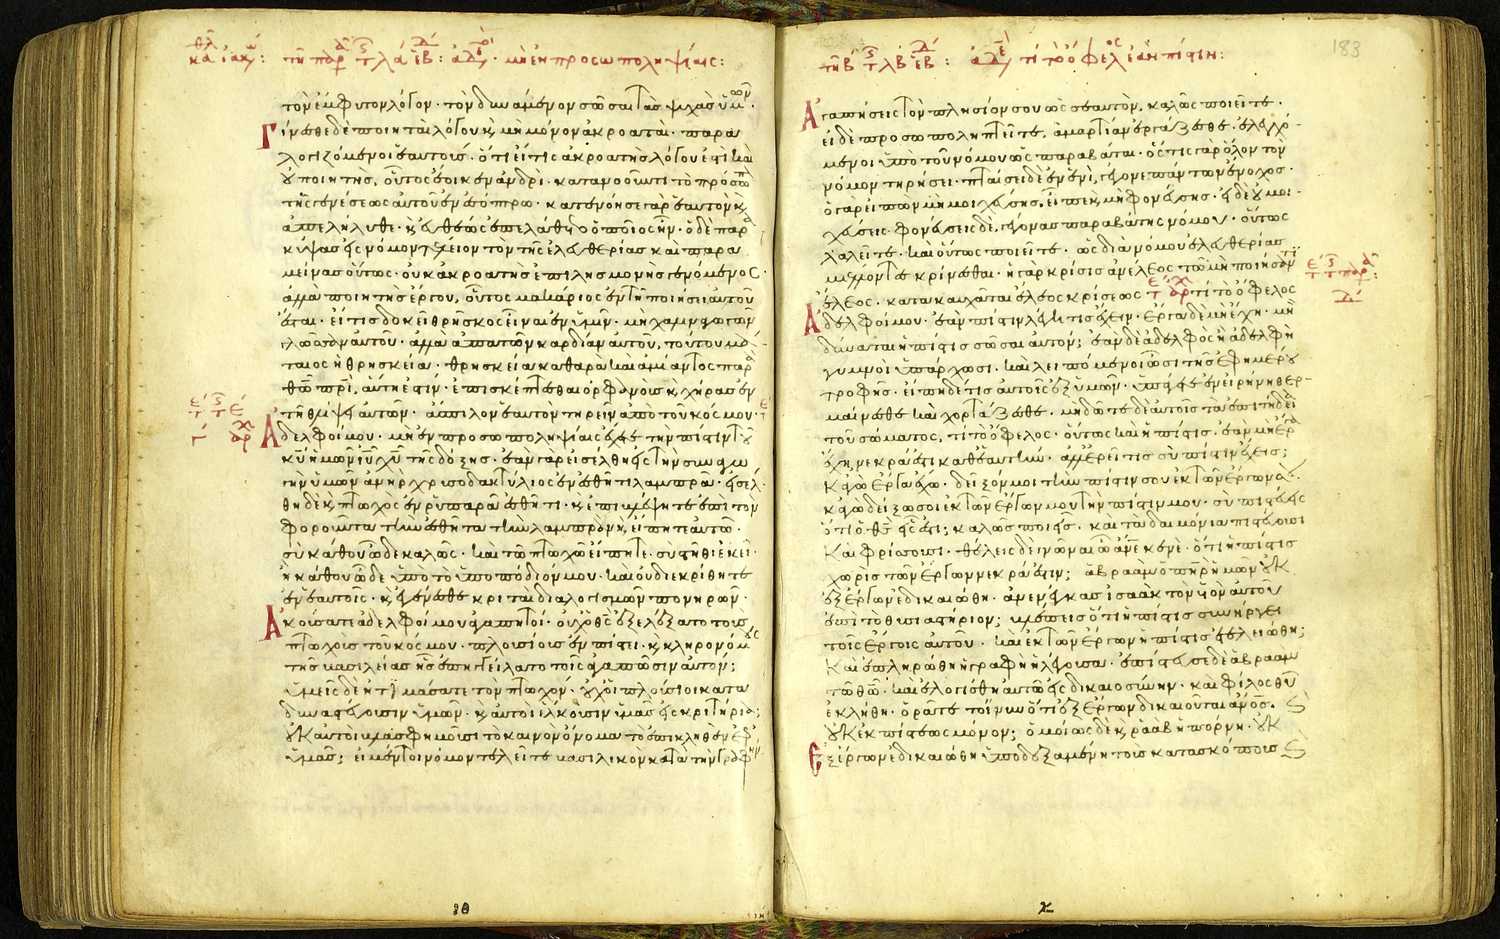 τὸν ἔμφυτον λόγον· τὸν δυνάμενον σῶσαι τὰς ψυχὰς ὑμῶν·
Γίνεσθε δὲ ποιηταὶ λόγου κ, μὴ μόνον ἀκροαταὶ· παρα
λογιζόμενοι ἑαυτούς· ὅτι εἴ τις ἀκροατὴς λόγου ἐστὶ καὶ
οὐ ποιητὴς, οὗτος ἔοικεν ἀνδρὶ· κατανοοῦντι τὸ πρόσωπ
τῆς γενέσεως αὐτοῦ ἐν ἐσόπτρω· κατενόησε γὰρ ἑαυτὸν κ,
ἀπελήλυθε· κ, εὐθέως ἐπελάθετο ὁποῖος ἦν· ὁ δὲ παρ
κύψας εἰς νόμον τέλειον τὸν τῆς ἐλευθερίας καὶ παρα
μείνας οὕτως· οὐκ ἀκροατὴς ἐπιλησμονῆς γενόμενος·
ἀλλὰ ποιητὴς ἔργου, οὗτος μακάριος ἐν τῆ ποιήσει αὐτοῦ
ἔσται· εἴ τις δοκεῖ θρῆσκος εἶναι ἐν ὑμῖν· μὴ χαλιναγωγῶν
γλῶσσαν αὐτοῦ· ἀλλὰ ἀπατῶν καρδίαν αὐτοῦ, τούτου μά
ταιος ἡ θρησκεία· θρησκεία καθαρὰ καὶ ἀμίαντος παρὰ
θῶ πρὶ, αὕτη ἐστὶν· ἐπισκέπτεσθαι ὀρφανοὺς κ, χήρας ἐν
τῆ θλίψει αὐτῶν· ἄσπιλον ἑαυτὸν τηρεῖν ἀπὸ τοῦ κόσμου·
Ἀδελφοί μου· μὴ ἐν προσωποληψίαις ἔχετε τὴν πίστιν τοῦ
κυ ἡμῶν ιυ χυ τῆς δόξης· ἐὰν γὰρ εἰσέλθη εἰς τὴν συναγω
γὴν ὑμῶν ἀνὴρ χρυσοδακτύλιος ἐν ἐσθῆτι λαμπρᾶ· εἰσέλ
θη δὲ κ, πτωχὸς ἐν ρυπαρᾶ ἐσθῆτι· κ, ἐπιβλέψητε ἐπὶ τὸν
φοροῦντα τὴν ἐσθῆτα τὴν λαμπρὰν, κ, εἴπητε αὐτῶ·
σὺ κάθου ὧδε καλῶς· καὶ τῶ πτωχῶ εἴπητε· σὺ στῆθι ἐκεῖ·
ἢ κάθου ὧδε ὑπὸ τὸ ὑποπόδιόν μου· καὶ οὐ διεκρίθητε
ἐν ἑαυτοῖς· κ, ἐγένεσθε κριταὶ διαλογισμῶν πονηρῶν·
Ἀκούσατε ἀδελφοί μου ἀγαπητοί· οὐχ ὁ θς ἐξελέξατο τοὺς
πτωχοὺς τοῦ κόσμου· πλουσίους ἐν πίστει· κ, κληρονόμους
τῆς βασιλείας ἧς ἐπηγγείλατο τοῖς ἀγαπῶσιν αὐτόν;
ὑμεῖς δὲ ἠτιμάσατε τὸν πτωχόν· οὐχ οἱ πλούσιοι κατα
δυναστεύουσιν ὑμῶν· κ, αὐτοὶ ἕλκουσιν ὑμᾶς εἰς κριτήρια;
οὐκ αὐτοὶ βλασφημοῦσι τὸ καινὸν ὄνομα τὸ ἐπικληθὲν ἐφ
ὑμᾶς; εἰ μέντοι νόμον τελεῖτε βασιλικὸν κατὰ τὴν γραφὴν
183
Ἀγαπήσεις τὸν πλησίον σου ὡς σεαυτὸν, καλῶς ποιεῖτε·
εἰ δὲ προσωποληπτεῖτε, ἁμαρτίαν ἐργάζεσθε· ἐλεγχό
μενοι ὑπὸ τοῦ νόμου ὡς παραβάται· ὅστις γὰρ ὅλον τὸν
νόμον τηρήσει· πταίσει δὲ ἐν ἑνὶ, γέγονε πάντων ἔνοχος·
ὁ γὰρ εἰπὼν μὴ μοιχεύσης, εἶπε κ, μὴ φονεύσης· εἰ δὲ οὐ μοι
χεύσεις· φονεύσεις δὲ, γέγονας παραβάτης νόμου· οὕτως
λαλεῖτε· καὶ οὕτως ποιεῖτε· ὡς διὰ νόμου ἐλευθερίας
μέλλοντες κρίνεσθαι· ἡ γὰρ κρίσις ἀνέλεος τῶ μὴ ποιήσαντι
ἔλεος· κατακαυχᾶται ἔλεος κρίσεως τί τὸ ὄφελος
Ἀδελφοί μου· ἐὰν πίστιν λέγη τις ἔχειν· ἔργα δὲ μὴ ἔχη· μὴ
δύναται ἡ πίστις σῶσαι αὐτόν; ἐὰν δὲ ἀδελφὸς ἢ ἀδελφὴ
γυμνοὶ ὑπάρχωσι· καὶ λειπόμενοι ὦσι τῆς ἐφημέρου
τροφῆς· εἴπη δέ τις αὐτοῖς ἐξ ὑμῶν· ὑπάγετε ἐν εἰρήνη θερ
μαίνεσθε καὶ χορτάζεσθε· μὴ δῶτε δὲ αὐτοῖς τὰ ἐπιτήδεια
τοῦ σώματος, τί τὸ ὄφελος· οὕτως καὶ ἡ πίστις· ἐὰν μὴ ἔργα
ἔχη, νεκρά ἐστι καθ᾽ ἑαυτήν· ἀλλ᾽ ἐρεῖ τις σὺ πίστιν ἔχεις;
κἀγὼ ἔργα ἔχω· δεῖξόν μοι τὴν πίστιν σου ἐκ τῶν ἔργων σου·
κἀγὼ δείξω σοι ἐκ τῶν ἔργων μου τὴν πίστιν μου· σὺ πιστεύεις
ὅτι ὁ θς εἷς ἐστι; καλῶς ποιεῖς· καὶ τὰ δαιμόνια πιστεύουσι
καὶ φρίσσουσι· θέλεις δὲ γνῶναι ὦ ἄνε κενὲ· ὅτι ἡ πίστις
χωρὶς τῶν ἔργων νεκρά ἐστιν; ἀβραὰμ ὁ πηρ ἡμῶν οὐκ
ἐξ ἔργων ἐδικαιώθη· ἀνενέγκας ἰσαὰκ τὸν υἱὸν αὐτοῦ
ἐπὶ τὸ θυσιαστήριον; βλέπεις ὅτι ἡ πίστις συνήργει
τοῖς ἔργοις αὐτοῦ· καὶ ἐκ τῶν ἔργων ἡ πίστις ἐτελειώθη;
καὶ ἐπληρώθη ἡ γραφὴ ἡ λέγουσα· ἐπίστευσε δὲ ἀβραὰμ
τῶ θῶ· καὶ ἐλογίσθη αὐτῶ εἰς δικαιοσύνην· καὶ φίλος θυ
ἐκλήθη· ὁρᾶτε τοίνυν ὅτι ἐξ ἔργων δικαιοῦται ἄνος·
οὐκ ἐκ πίστεως μόνον; ὁμοίως δὲ κ, ραὰβ ἡ πόρνη· οὐκ
Ἐξ ἔργων ἐδικαιώθη ὑποδεξαμένη τοὺς κατασκόπους